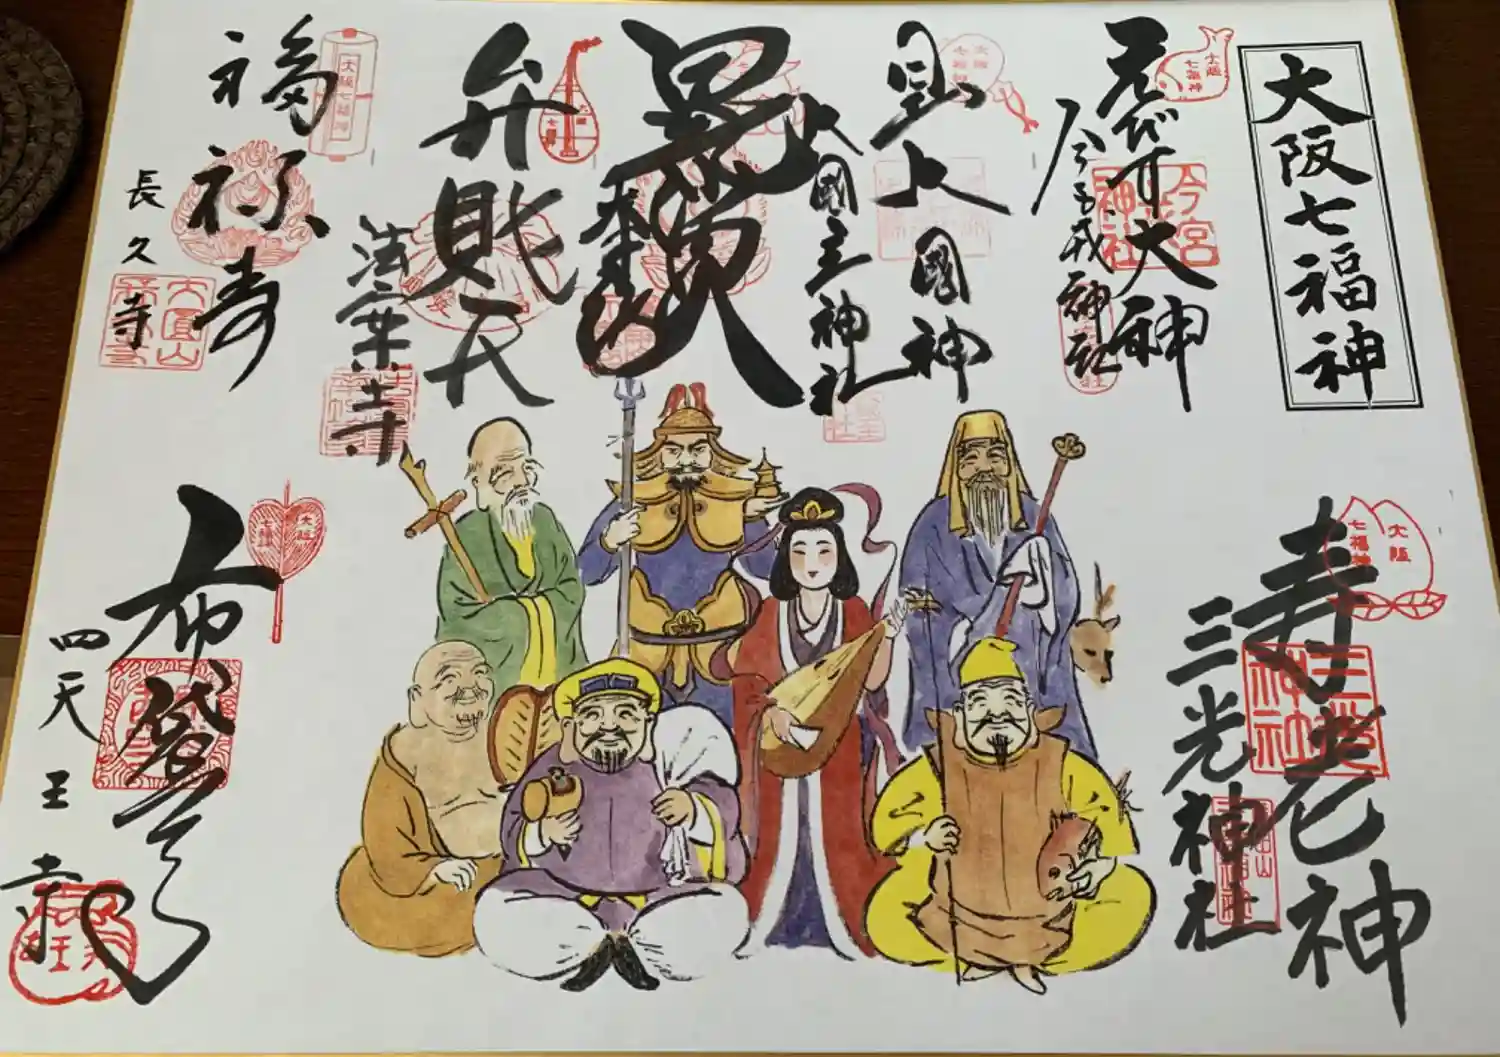 大阪七福神
えびす大神
今宮戎神社
大阪七福神
日出大國神
大國主神社
大阪七福神
弁財天
法案寺
福禄寿
長久寺
大阪七福神
寿老神
三光神社
大阪七福神
三光神社
布袋尊
四天王寺
大阪七福神